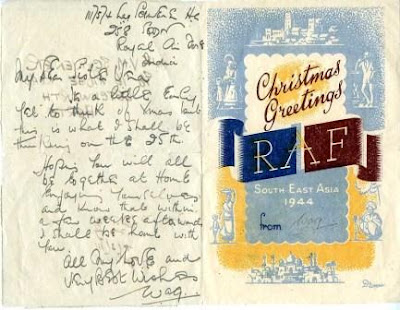 Royal Air Force
India
My Dear
In a little early
Yet to think of Xmas but
this is what I shall be
thinking on the 25th.
Hoping you will all
be together at home
enjoying yourselves
and know that within
a few weeks afterwards
I shall be home with
you.
All my love and
very best wishes
Wag.
Christmas
Greetings
RAF
SOUTH EAST ASIA
1944
from Wag